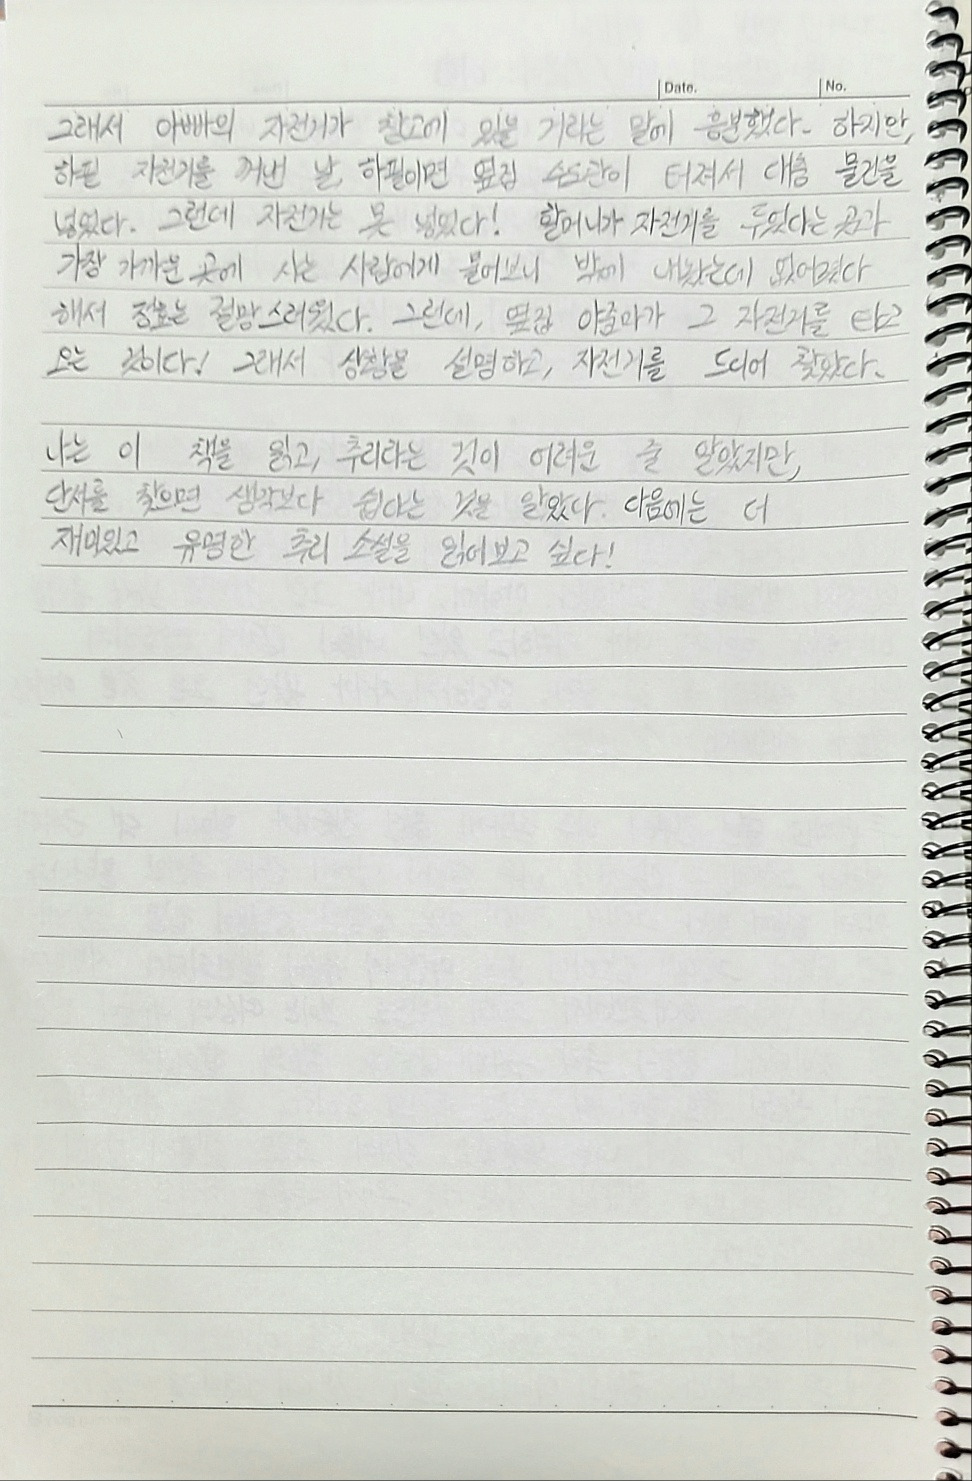 Date. No.
그래서 아빠의 자전거가 창고에 있을 거라는 말에 흥분했다. 하지만,
하필 자전거를 꺼낸 날, 하필이면 옆집 수도관이 터져서 대충 물건을
넣었다. 그런데 자전거는 못 넣었다! 할머니가 자전거를 두었다는 곳과
가장 가까운 곳에 사는 사람에게 물어보니 밖에 내놨는데 없어졌다
해서 정효는 절망스러웠다. 그런데, 옆집 아줌마가 그 자전거를 타고
오는 것이다! 그래서 상황을 설명하고, 자전거를 드디어 찾았다.
나는 이 책을 읽고, 추리라는 것이 어려운 줄 알았지만,
단서를 찾으면 생각보다 쉽다는 것을 알았다. 다음에는 더
재미있고 유명한 추리 소설을 읽어보고 싶다!